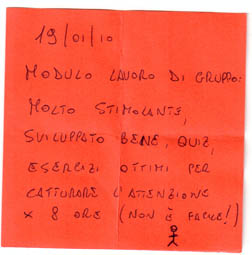 19/01/10
MODULO LAVORO DI GRUPPO:
MOLTO STIMOLANTE,
SVILUPPATO BENE, QUIZ,
ESERCIZI OTTIMI PER
CATTURARE L'ATTENZIONE
x 8 ORE (NON È FACILE!)